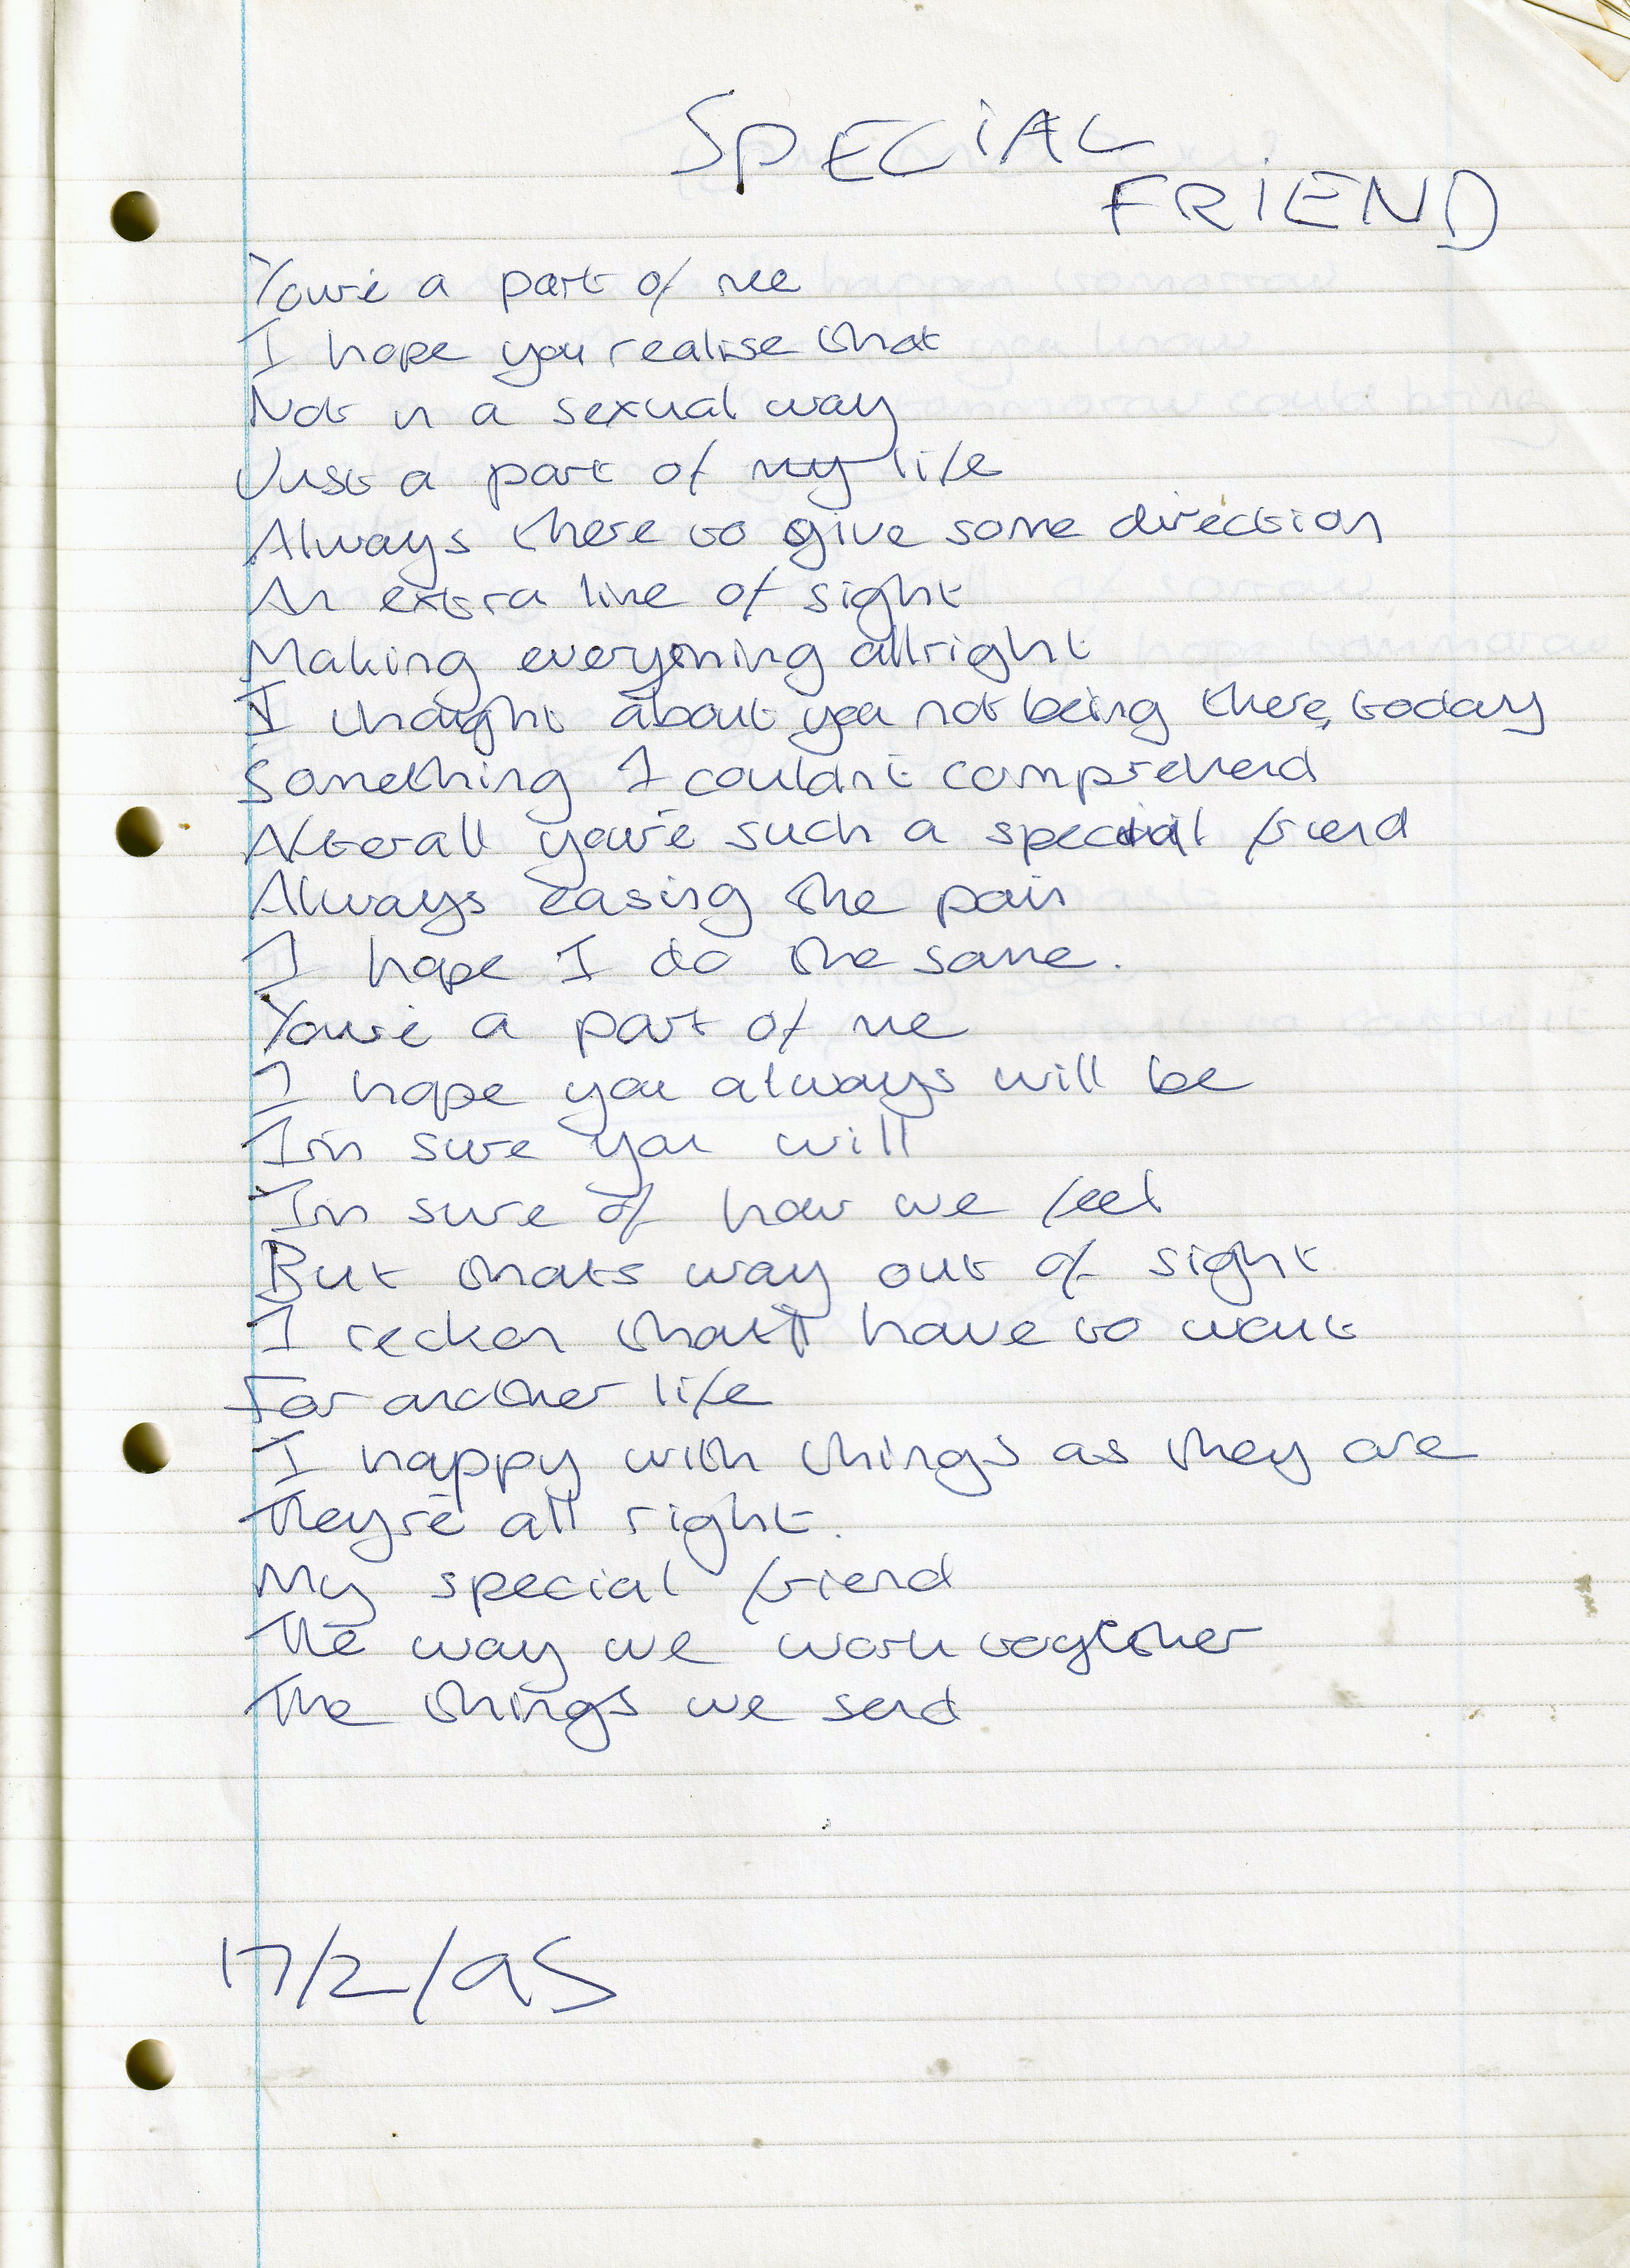 SPECIAL
FRIEND
You're a part of me
I hope you realise that
Not in a sexual way
Just a part of my life
Always there to give some direction
An extra line of sight
Making everything allright
I thought about you not being there, today
Something I couldn't comprehend
Afterall you're such a special friend
Always easing the pain
I hope I do the same.
You're a part of me
I hope you always will be
I'm sure you will
I'm sure of how we feel
But thats way out of sight
I reckon that'll have to wait
For another life
I happy with things as they are
They're all right.
My special friend
The way we work together
The things we send
17/2/95